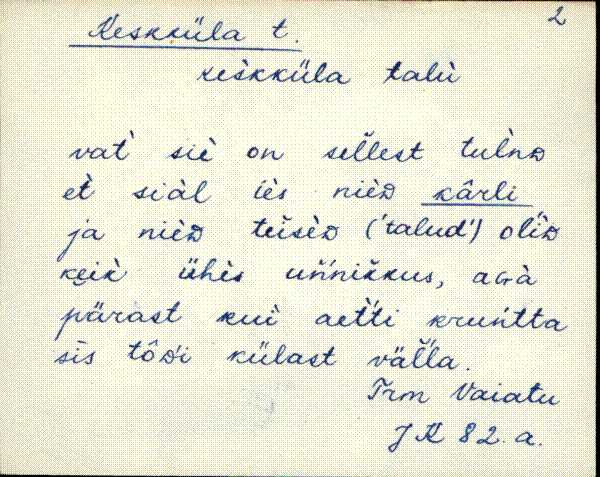 2
Keskküla t.
keskküla talu
vat̀ siè on sel̆lest tulnD
et̀ siàl iès nièD kârli
ja nièD teìsèD ('talud') olìD
keik̀ ühès un̆nik̆kus, aGà
pärast kui aet̆ti kruǹtta
sìs tôD̀i külast väl̆la.
Trm Vaiatu
JK 82. a.